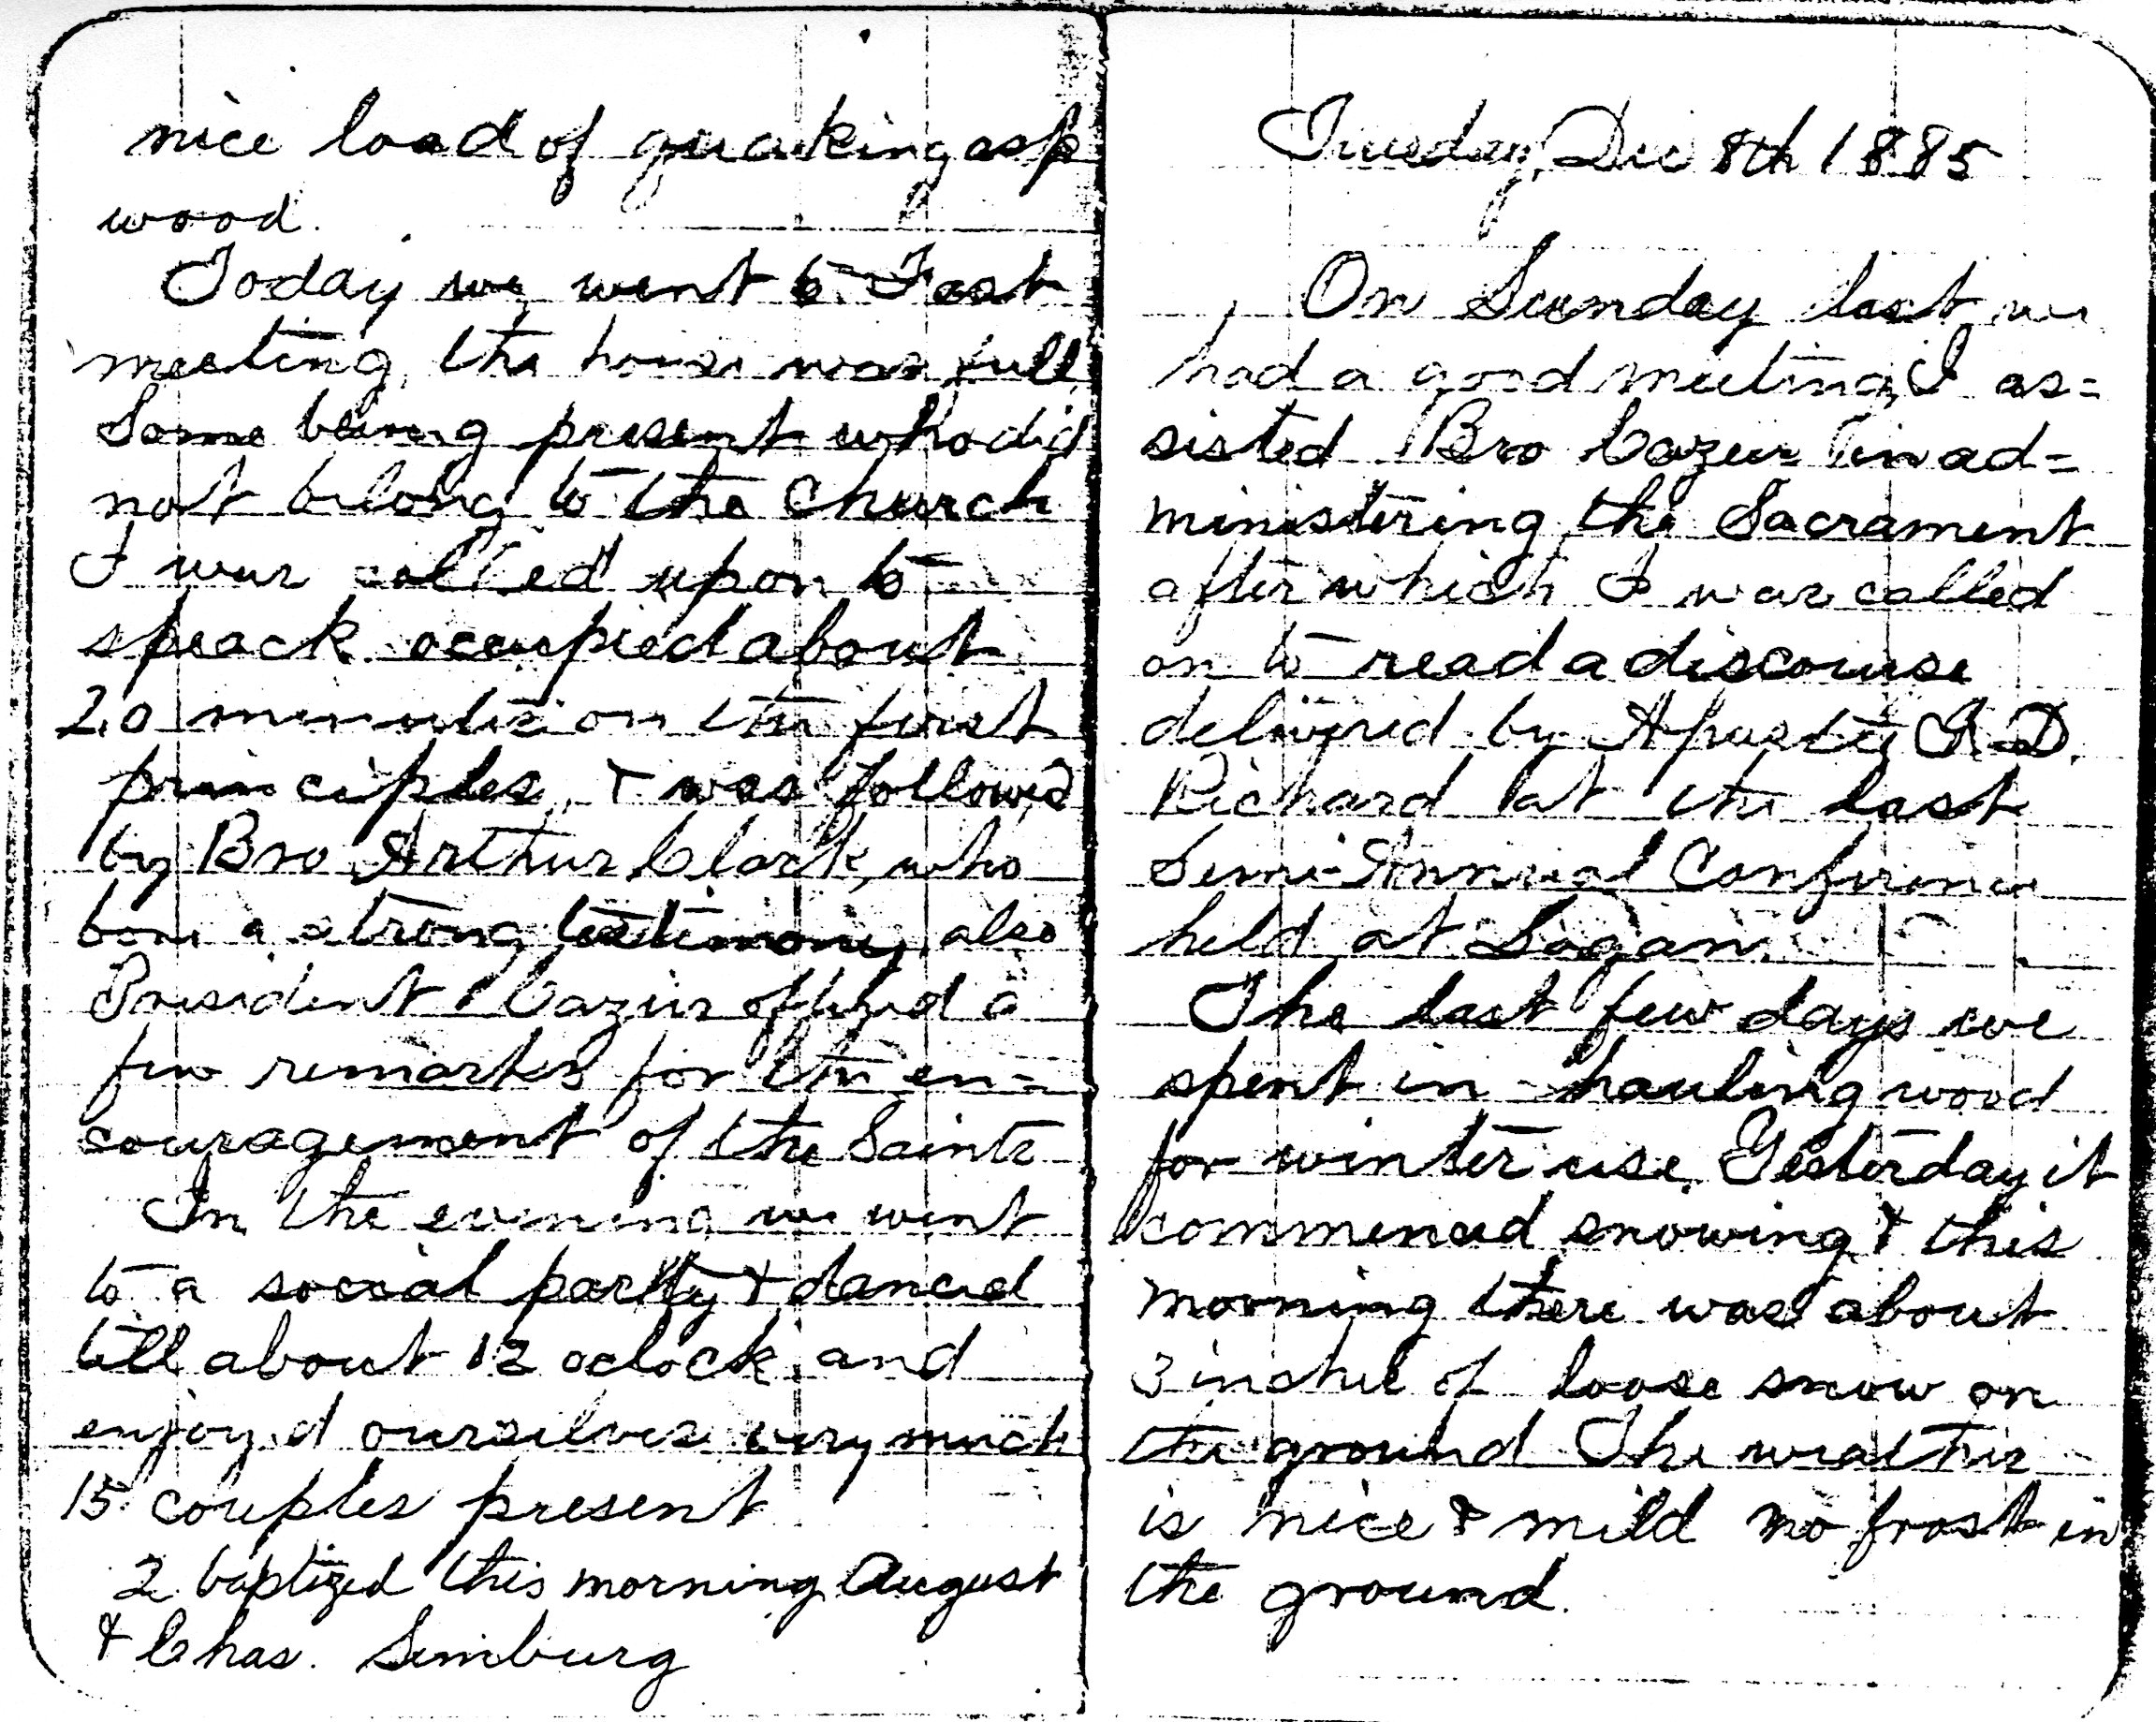 nice load of quaking asp
wood.
Today we went to Fast
meeting, the house was full
Some being present who did
not belong to the Church
I was called upon to
speack occupied about
20 minutes on the first
principles, & was followed
by Bro Arthur Clark, who
bore a strong testimony, also
President Cazier offered a
few remarks for the en=
couragement of the Saints
In the evening we went
to a social party & danced
till about 12 oclock, and
enjoyed ourselves very much
15 couples present
2 baptized this morning August
& Chas. Simburg
Tuesday, Dec 8th 1885
On Sunday last we
had a good meeting, I as=
sisted Bro Cazier in ad=
ministering the Sacrament
after which I was called
on to read a discourse
delivered by Apostle D.
Richard at the last
Semi-Annual Conference
held at Logan.
The last few days we
spent in hauling wood
for winter use. Yesterday it
commenced snowing & this
morning there was about
3 inches of loose snow on
the ground The weather
is nice & mild no frost in
the ground.